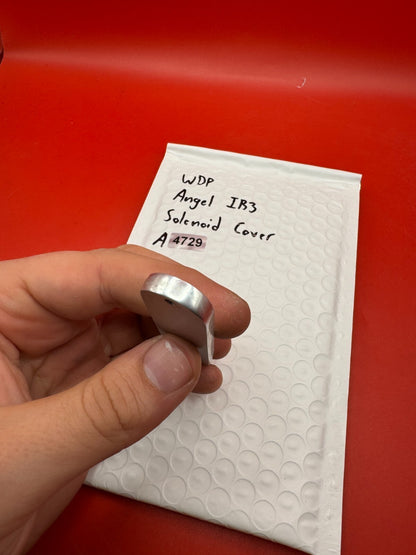 WDP
Angel IR3
Solenoid Cover
A 4729